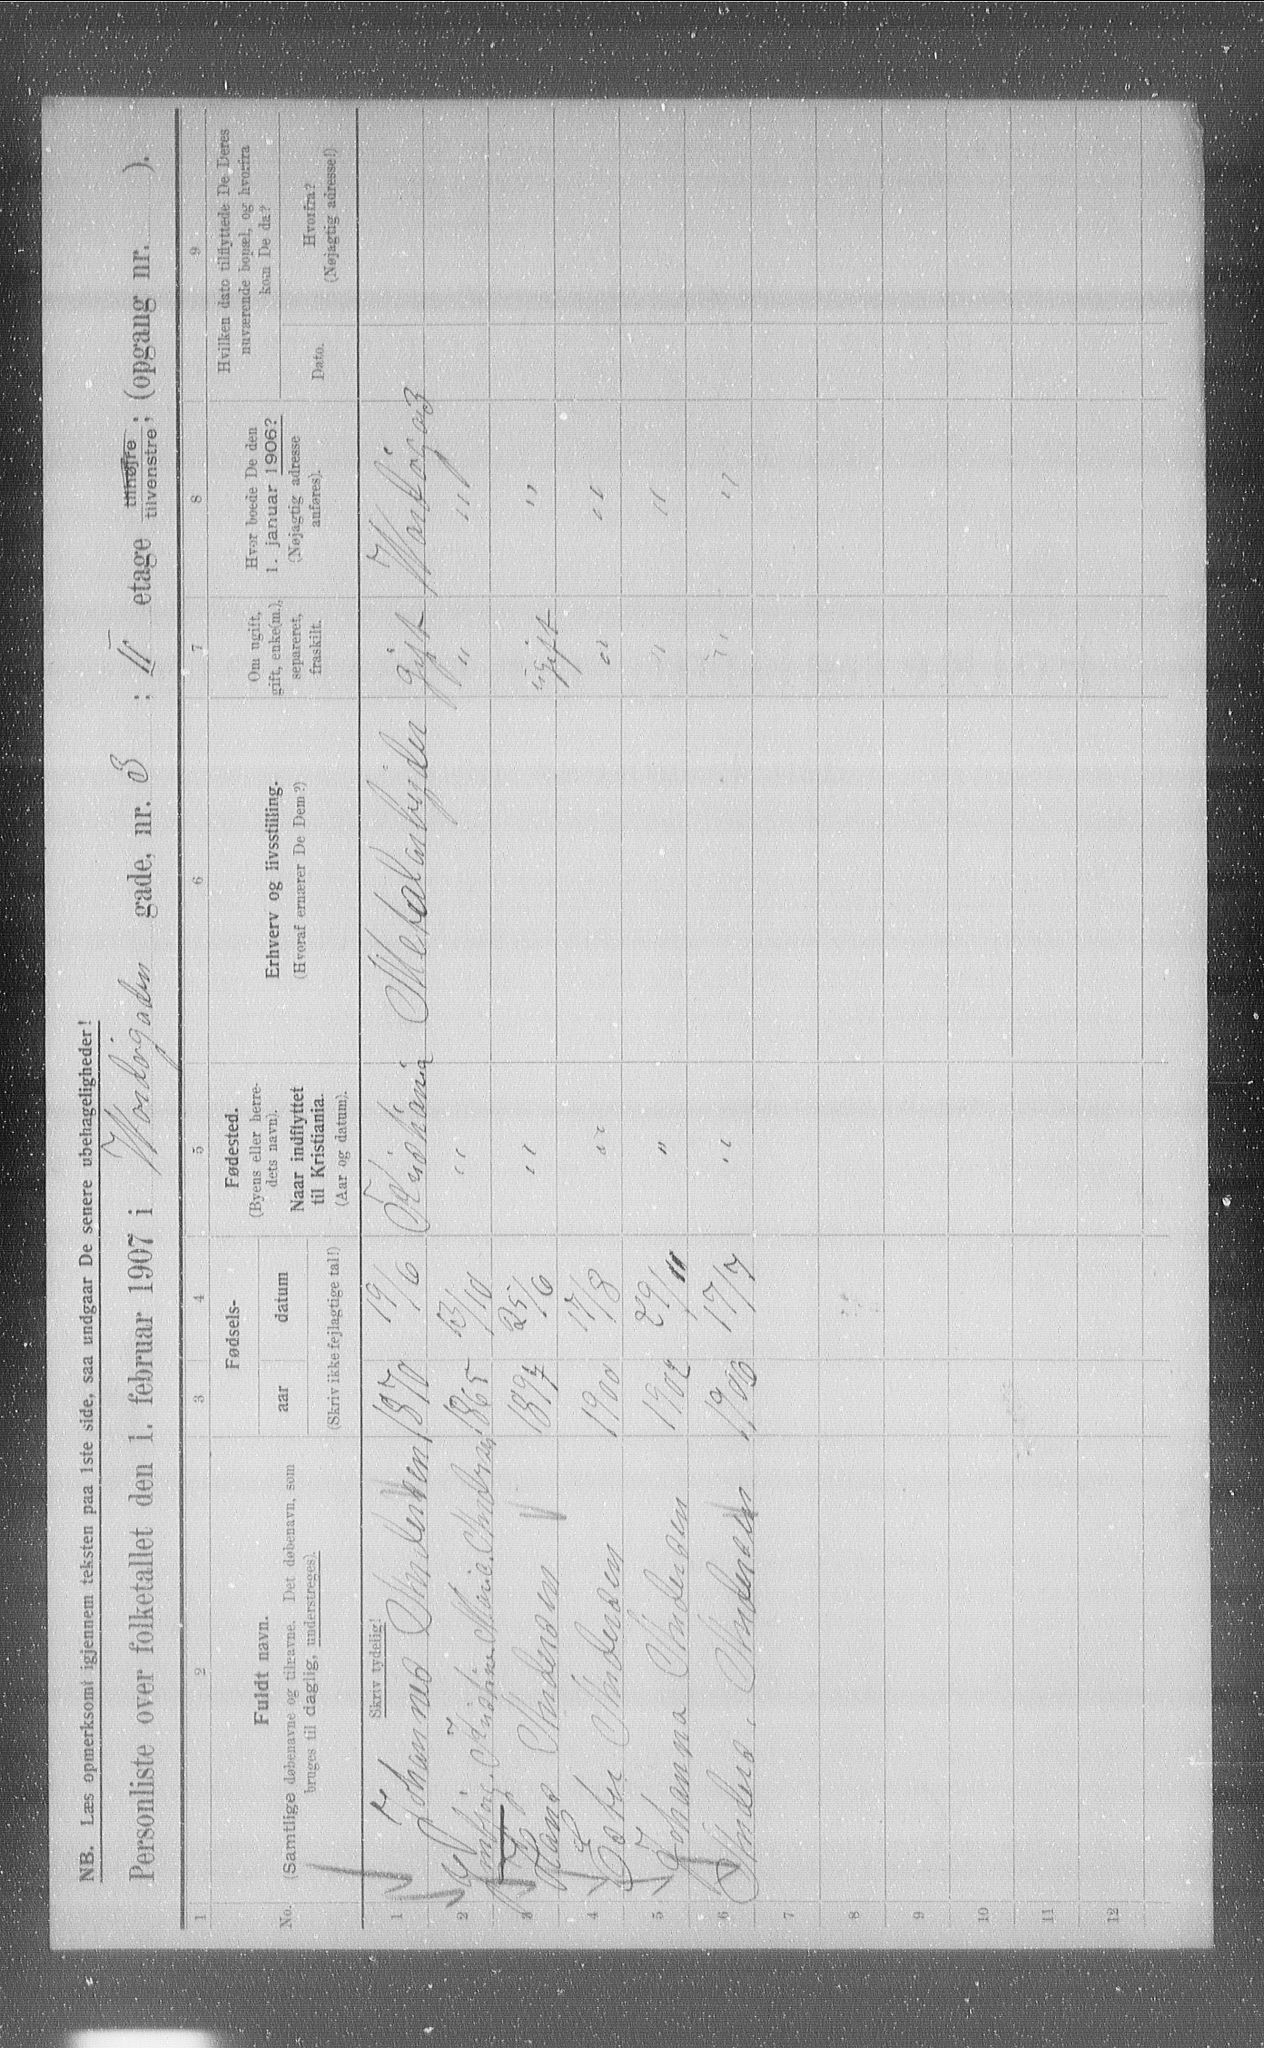 NB. Læs opmerksomt igjennem teksten paa 1ste side, saa undgaar De senere ubehageligheder!
Personliste over folketallet den 1. februar 1907 i Nordregaden gade, nr. 3 ; II etage tilhøjre tilvenstre; (opgang nr. ).
1 2 3 4 5 6 7 8 9
No.
Fuldt navn.
(Samtlige døbenavne og tilnavne. Det døbenavn, som
bruges til daglig, understreges).
Fødsels-
aar datum
(Skriv ikke fejlagtige tal!)
Fødested.
(Byens eller herre-
dets navn).
Naar indflyttet
til Kristiania.
(Aar og datum).
Erhverv og livsstilling.
(Hvoraf ernærer De Dem?)
Om ugift,
gift, enke(m.),
separeret,
fraskilt.
Hvor boede De den
1. januar 1906?
(Nøjagtig adresse
anføres).
Hvilken dato tilflyttede De Deres
nuværende bopæl, og hvorfra
kom De da?
Dato.
Hvorfra?
(Nøjagtig adresse!)
Skriv tydelig!
1 Johannes Andersen 1870 19/6 Kristiania Metalarbejder gift
2 Kristine Maria Andersen 1865 13/10 " " "
3 Hans Andersen 1897 25/6 " ugift "
4 Andersen 1900 17/8 " " "
5 Johanna Andersen 1902 29/11 " " "
6 Anders Andersen 1906 17/7 " " "
7
8
9
10
11
12